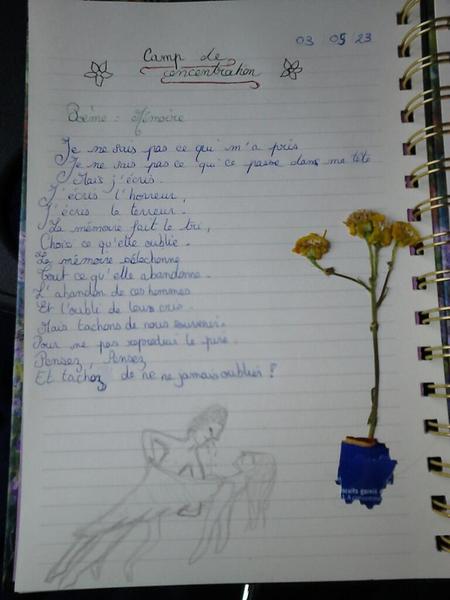 03 09 23
Camp de
concentration
Poème : Mémoire
Je ne sais pas ce qui m'a pris
Je ne sais pas ce qui ce passe dans ma tête
Mais j'écris.
J'écris l'horreur,
J'écris la terreur.
La mémoire fait le tri,
Choisi ce qu'elle oublie.
La mémoire sélectionne
Tout ce qu'elle abandonne.
L'abandon de ces hommes
Et l'oubli de leurs cris.
Mais tachons de nous souvenir.
Pour ne pas reproduire le pire.
Pensez, Pensez
Et tachez de ne ne jamais oublier !
garnis